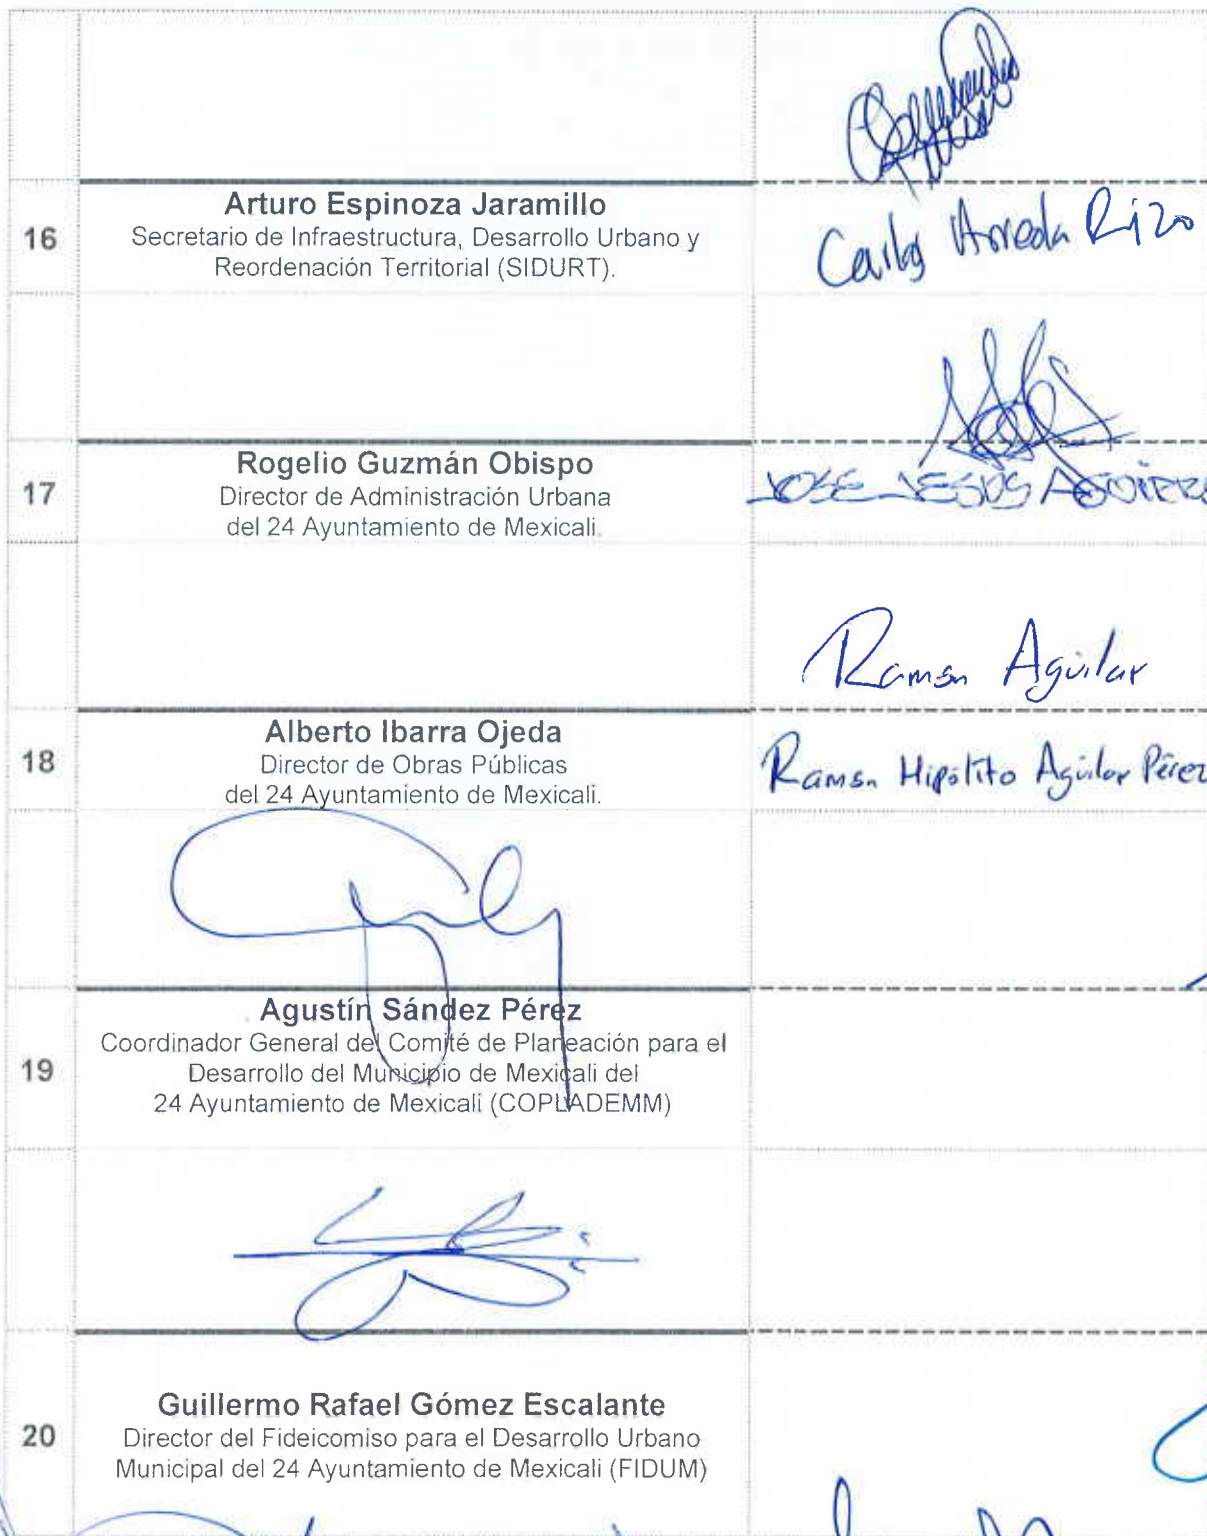 16
Arturo Espinoza Jaramillo
Secretario de Infraestructura, Desarrollo Urbano y
Reordenación Territorial (SIDURT).
Rizo
17
Rogelio Guzmán Obispo
Director de Administración Urbana
del 24 Ayuntamiento de Mexicali.
JOSE JESUS
Ramón Aguilar
18
Alberto Ibarra Ojeda
Director de Obras Públicas
del 24 Ayuntamiento de Mexicali.
Ramón Hipólito Aguilar Pérez
19
Agustín Sández Pérez
Coordinador General del Comité de Planeación para el
Desarrollo del Municipio de Mexicali del
24 Ayuntamiento de Mexicali (COPLADEMM)
20
Guillermo Rafael Gómez Escalante
Director del Fideicomiso para el Desarrollo Urbano
Municipal del 24 Ayuntamiento de Mexicali (FIDUM)